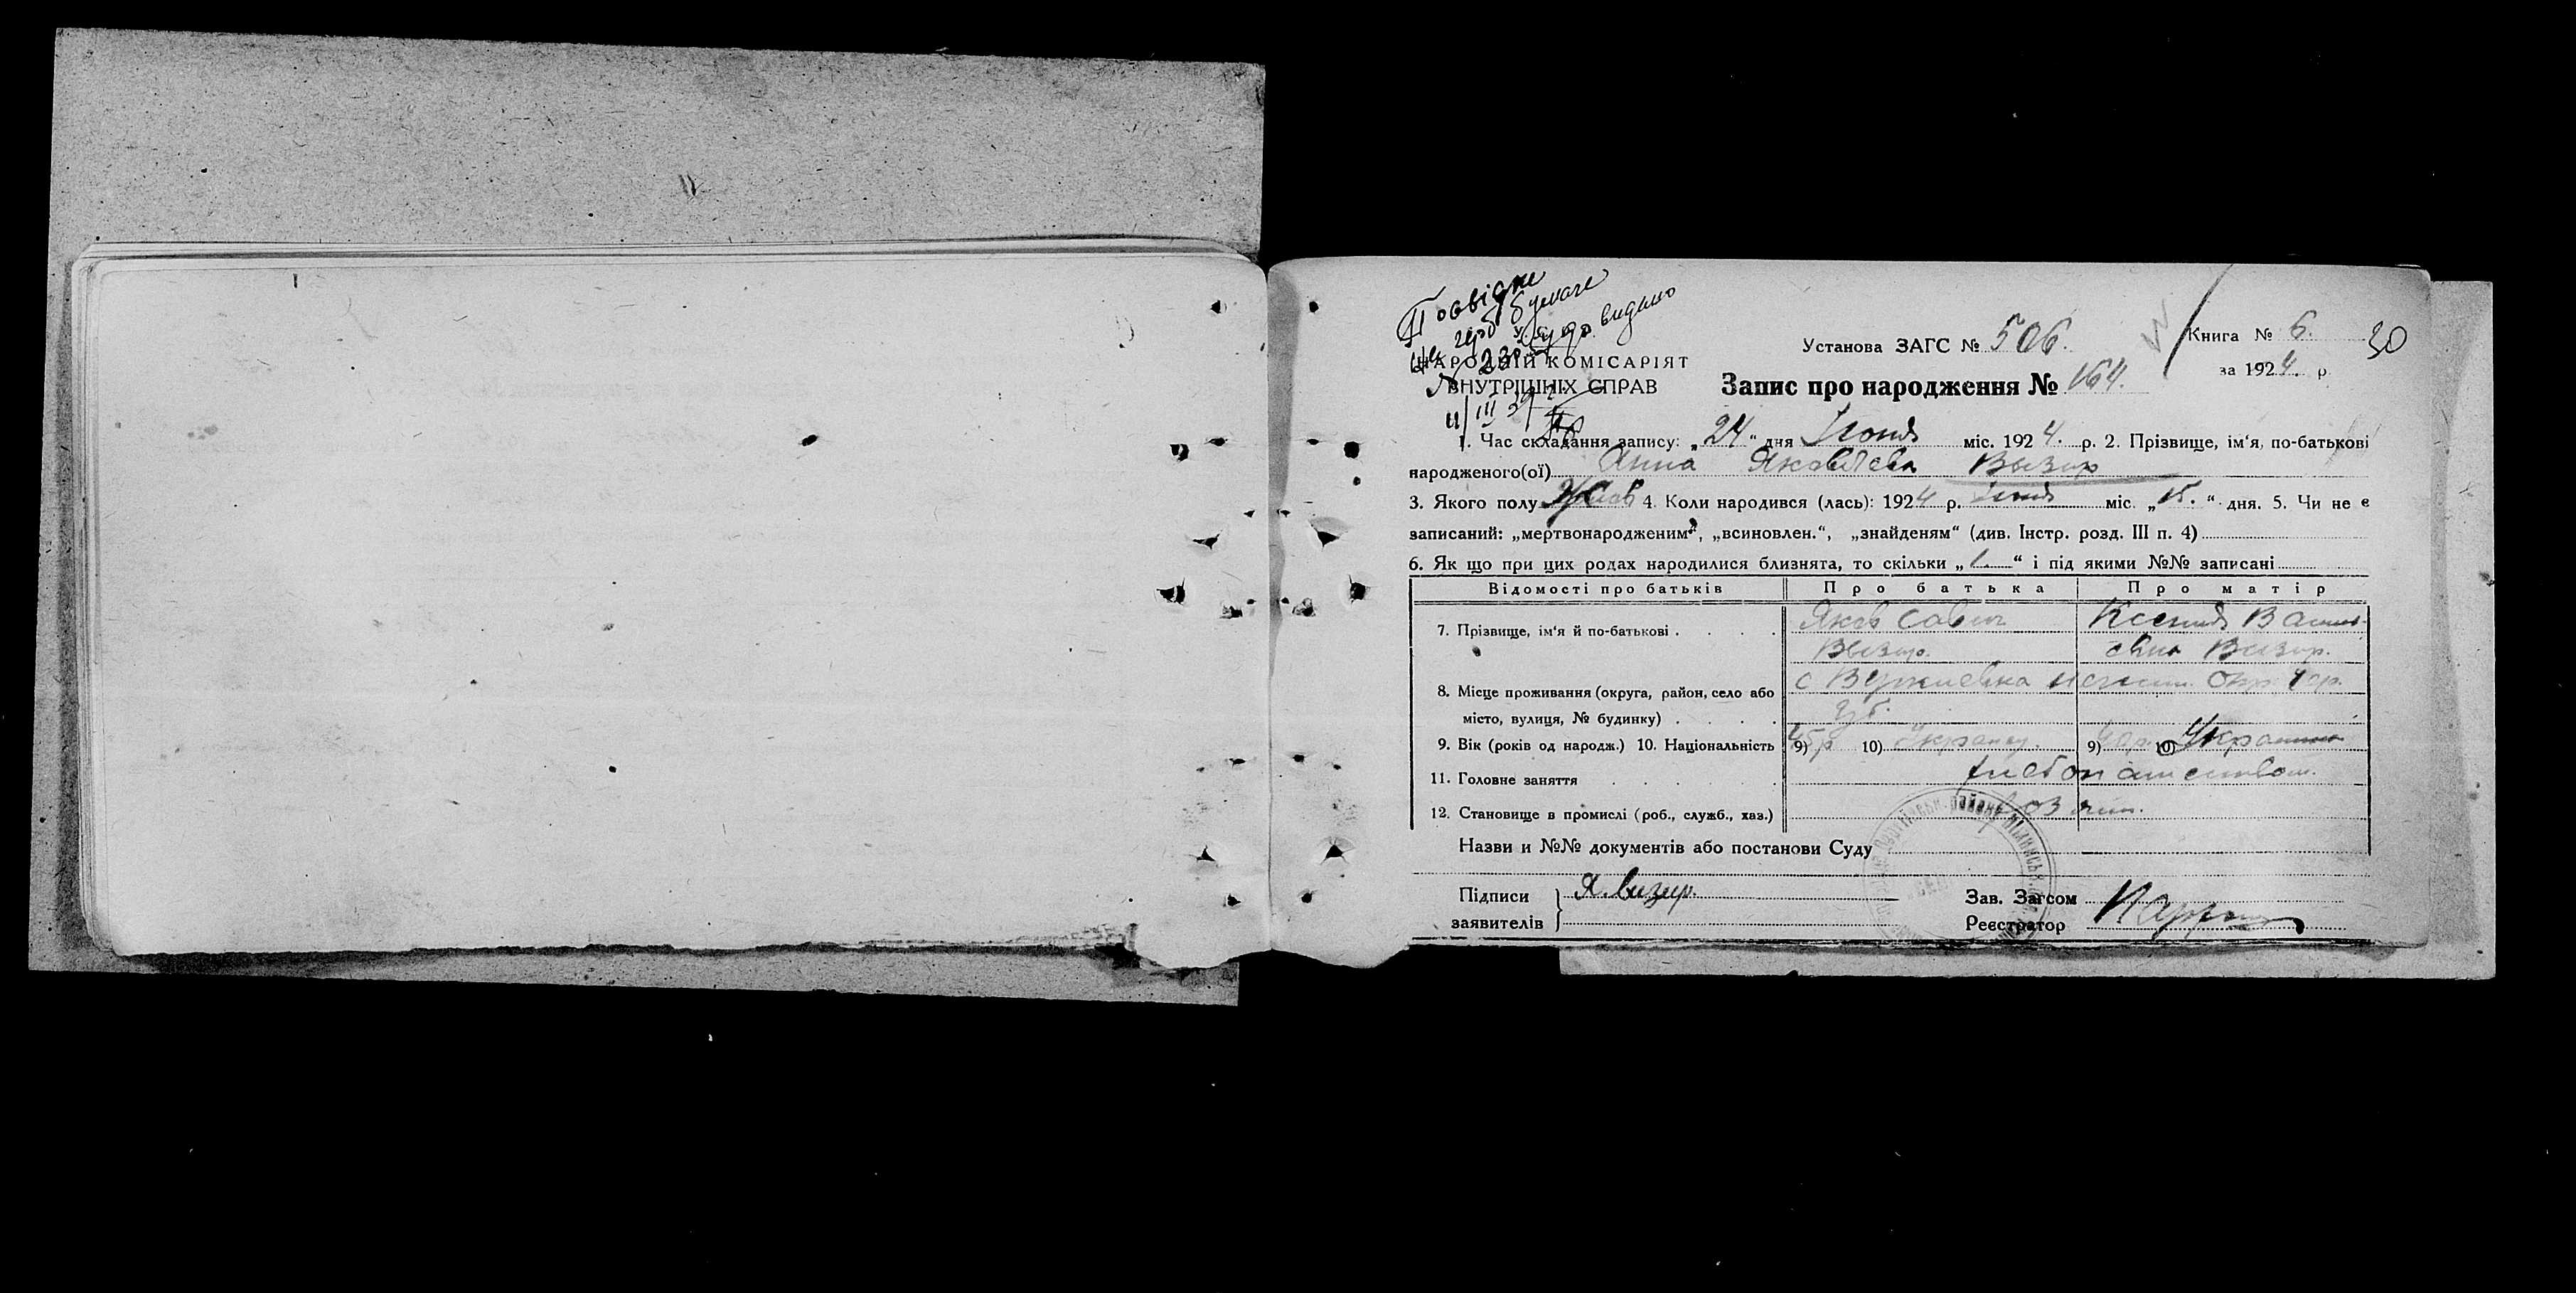 Довідке
на герб бумаге
видано
Установа ЗАГС № 506.
Книга № 6.
30
НАРОДНІЙ КОМІСАРІЯТ
за 1924. р.
ВНУТРІШНІХ СПРАВ
Запис про народження № 164.
1. Час складання запису: „24“ дня Июня міс. 1924. р. 2. Прізвище, ім‘я, по-батькові
народженого(ої) Анна Яковлева Вызир
3. Якого полу 4. Коли народився (лась): 1924 р. Июня міс. „15.“ дня. 5. Чи не є
записаний: „мертвонародженим“, „всиновлен.“, „знайденям“ (див. Інстр. розд. III п. 4)
6. Як що при цих родах народилися близнята, то скільки „1.“ і під якими №№ записані
Відомості про батьків Про батька Про матір
7. Прізвище, ім‘я й по-батькові Яков Савич Ксения Василь-
Вызир. евна Вызир.
8. Місце проживання (округа, район, село або с Вертиевка Нежин. Окр. Чер.
місто, вулиця, № будинку) Губ.
9. Вік (років од народж.) 10. Національність 9) 45р 10) Украинец. 9) 40р. 10) Украинка
11. Головне заняття Хлебопашеством.
12. Становище в промислі (роб., служб., хаз.) Хозяин.
Назви и №№ документів або постанови Суду
Підписи Я. Визир. Зав. Загсом
заявителів Реєстратор